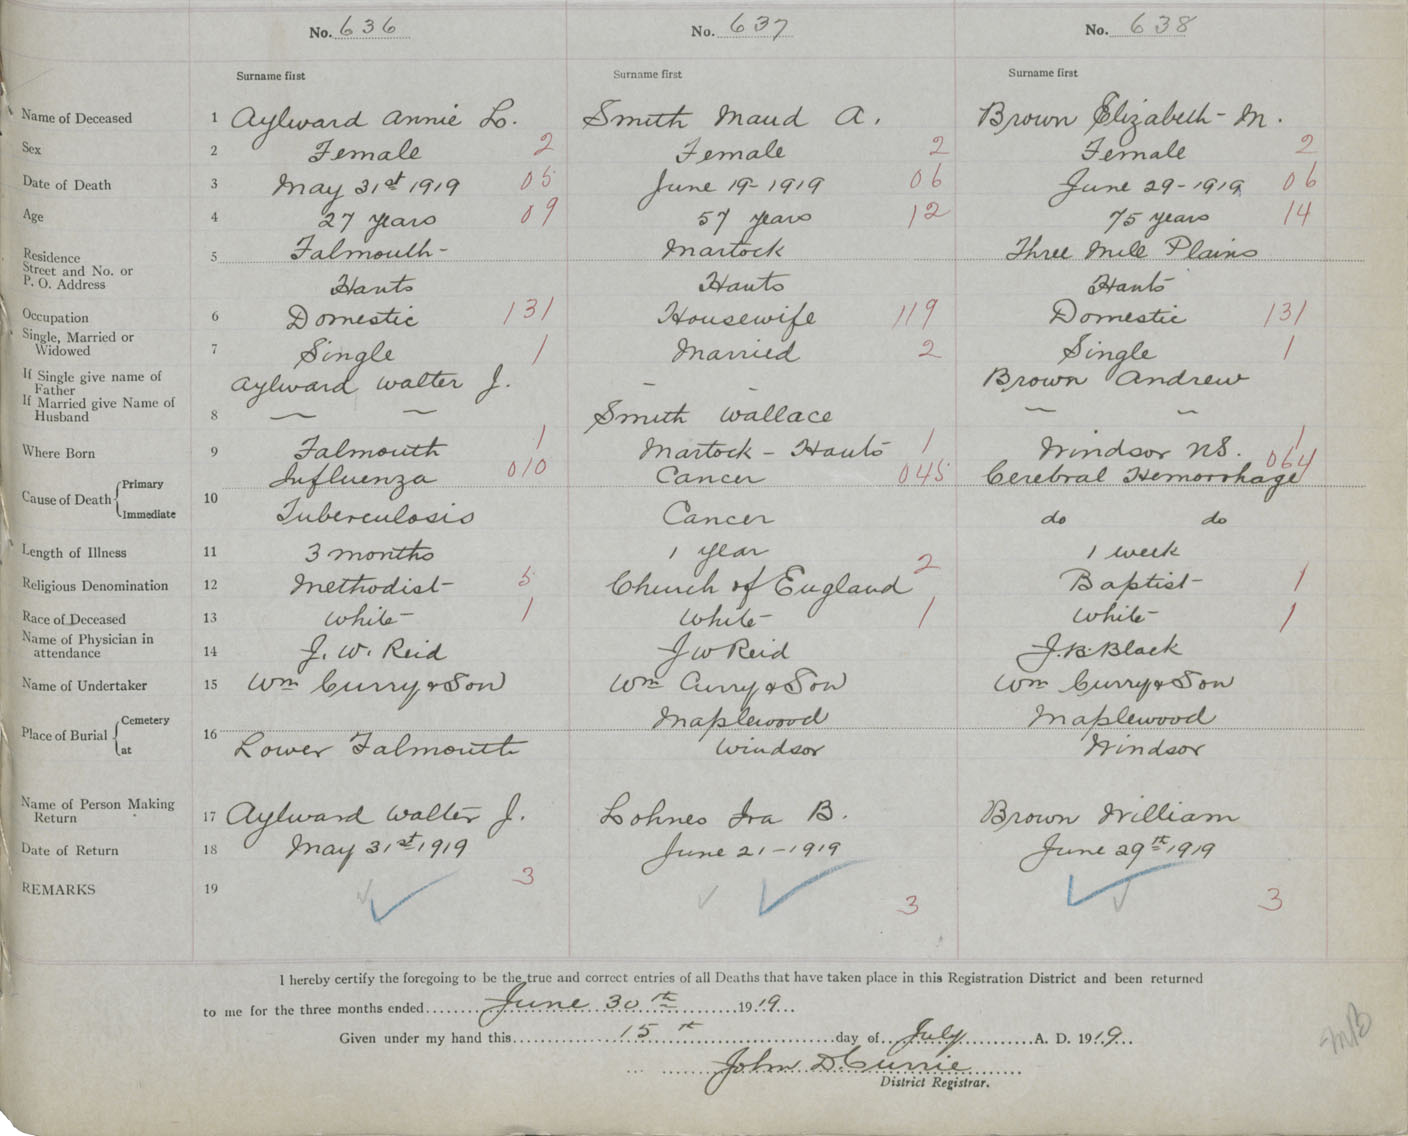 No. 636 No. 637 No. 638
Surname first Surname first Surname first
Name of Deceased 1 Aylward Annie L. Smith Maud A. Brown Elizabeth - M.
Sex 2 Female 2 Female 2 Female 2
Date of Death 3 May 31st 1919 05 June 19 - 1919 06 June 29 - 1919 06
Age 4 27 years 09 57 years 12 75 years 14
Residence 5 Falmouth - Martock Three Mile Plains
Street and No. or
P. O. Address Hants Hants Hants
Occupation 6 Domestic 131 Housewife 119 Domestic 131
Single, Married or
Widowed 7 Single 1 Married 2 Single 1
If Single give name of
Father Aylward Walter J. - - Brown Andrew
If Married give Name of
Husband 8 — — Smith Wallace — —
Where Born 9 Falmouth 1 Martock - Hants 1 Windsor NS. 1
Cause of Death Primary 10 Influenza 010 Cancer 045 Cerebral Hemorrhage 064
Immediate Tuberculosis Cancer do do
Length of Illness 11 3 months 1 year 1 week
Religious Denomination 12 Methodist 5 Church of England 2 Baptist 1
Race of Deceased 13 White 1 White 1 White 1
Name of Physician in
attendance 14 J. W. Reid J W Reid J. B. Black
Name of Undertaker 15 Wm Curry & Son Wm Curry & Son Wm Curry & Son
Place of Burial Cemetery 16 Maplewood Maplewood
at Lower Falmouth Windsor Windsor
Name of Person Making
Return 17 Aylward Walter J. Lohnes Ira B. Brown William
Date of Return 18 May 31st 1919 June 21 - 1919 June 29th 1919
REMARKS 19 3 3 3
I hereby certify the foregoing to be the true and correct entries of all Deaths that have taken place in this Registration District and been returned
to me for the three months ended June 30th 1919
Given under my hand this 15th day of July A. D. 1919
John D. Currie
District Registrar.
MB